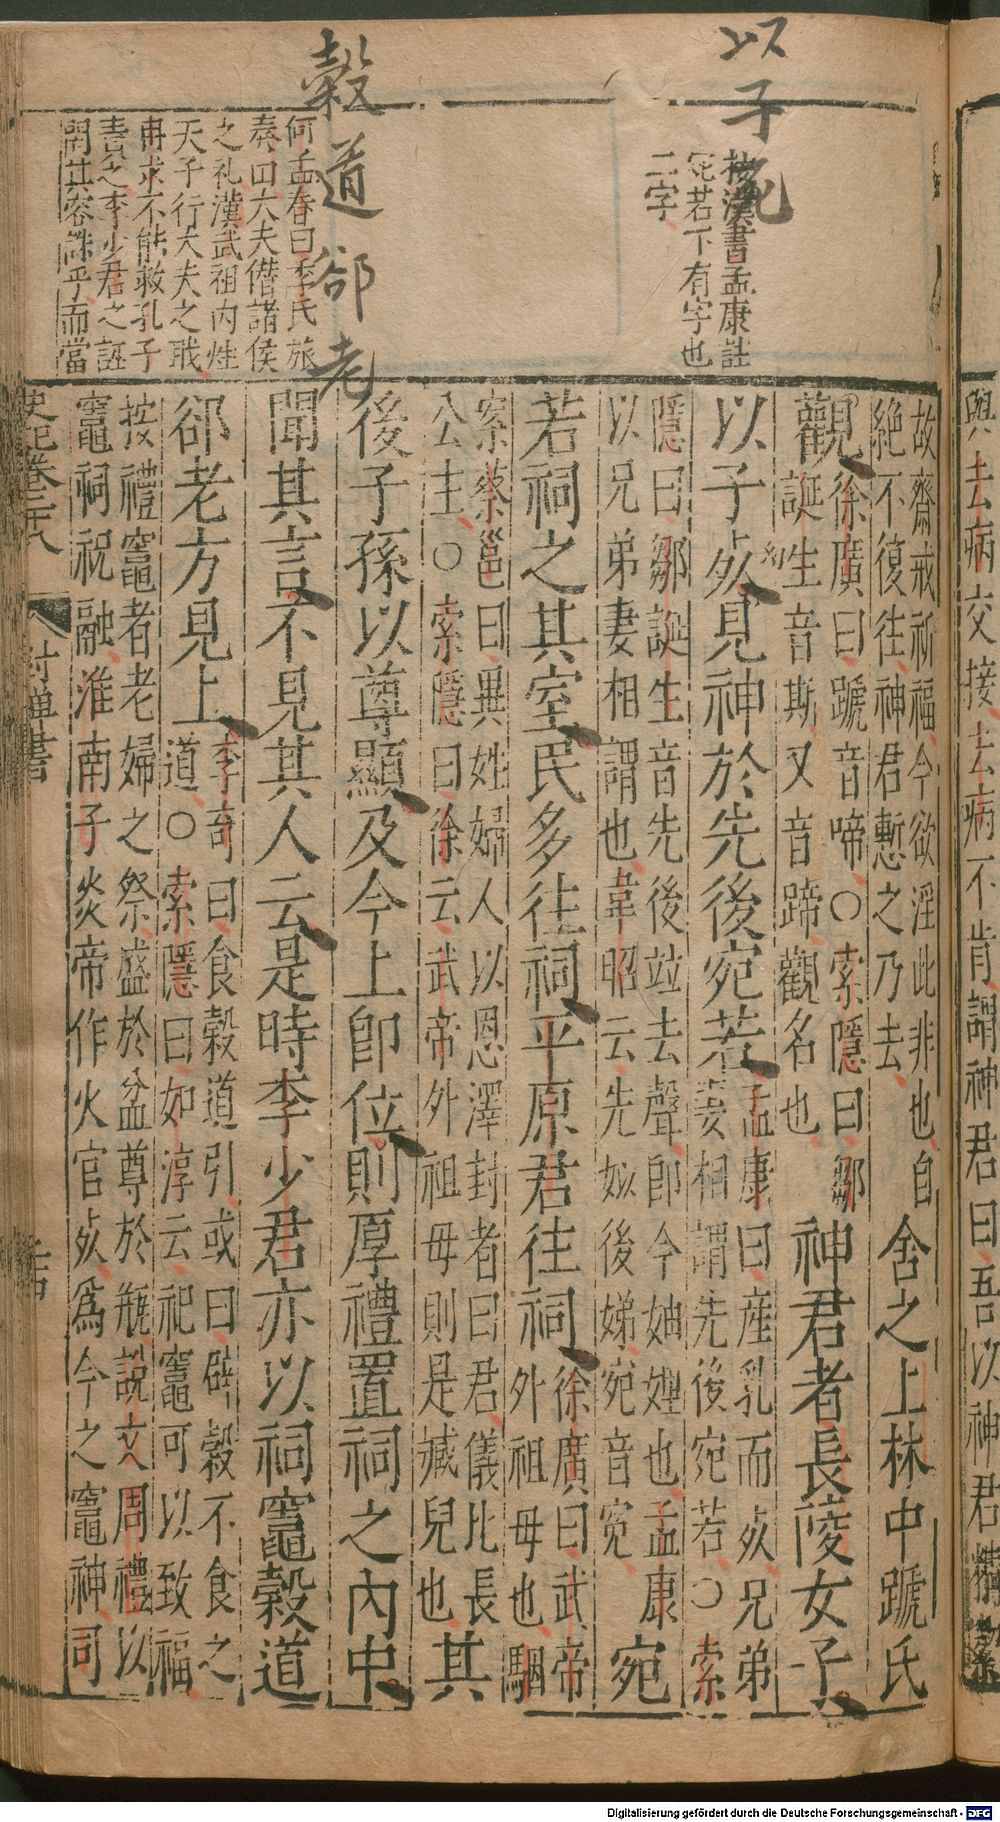 與去病交接去病不肯謂神君曰吾以神君精潔
以子死
按漢書孟康註
宛若下有字也
二字
穀道卻老
何孟春曰季氏旅
泰山大夫僭諸侯
之礼漢武祖内
天子行大夫之職
冉求不能救孔子
責之李少君之誣
罔其容誅乎而當
故齋戒祈福今欲淫此非也自
絶不復往神君慙之乃去
舍之上林中蹏氏
觀
徐廣曰蹏音啼○索隱曰鄒
誕生音斯又音蹄觀名也
神君者長陵女子
以子死見神於先後宛若
孟康曰産乳而死兄弟
妻相謂先後宛若○索
隱曰鄒誕生音先後竝去聲卽今妯娌也孟康
以兄弟妻相謂也韋昭云先姒後娣宛音寃
宛
若祠之其室民多往祠平原君往祠
徐廣曰武帝
外祖母也駰
案蔡邕曰異姓婦人以恩澤封者曰君儀比長
公主○索隱曰徐云武帝外祖母則是臧兒也
其
後子孫以尊顯及今上卽位則厚禮置祠之內中
聞其言不見其人云是時李少君亦以祠竈穀道
卻老方見上
李奇曰食穀道引或曰辟穀不食之
道○索隱曰如淳云祀竈可以致福
按禮竈者老婦之祭盛於盆尊於瓶說文周禮以
竈祠祝融淮南子炎帝作火官死爲今之竈神司
史記卷二十八
封禪書
Digitalisierung gefördert durch die Deutsche Forschungsgemeinschaft - DFG